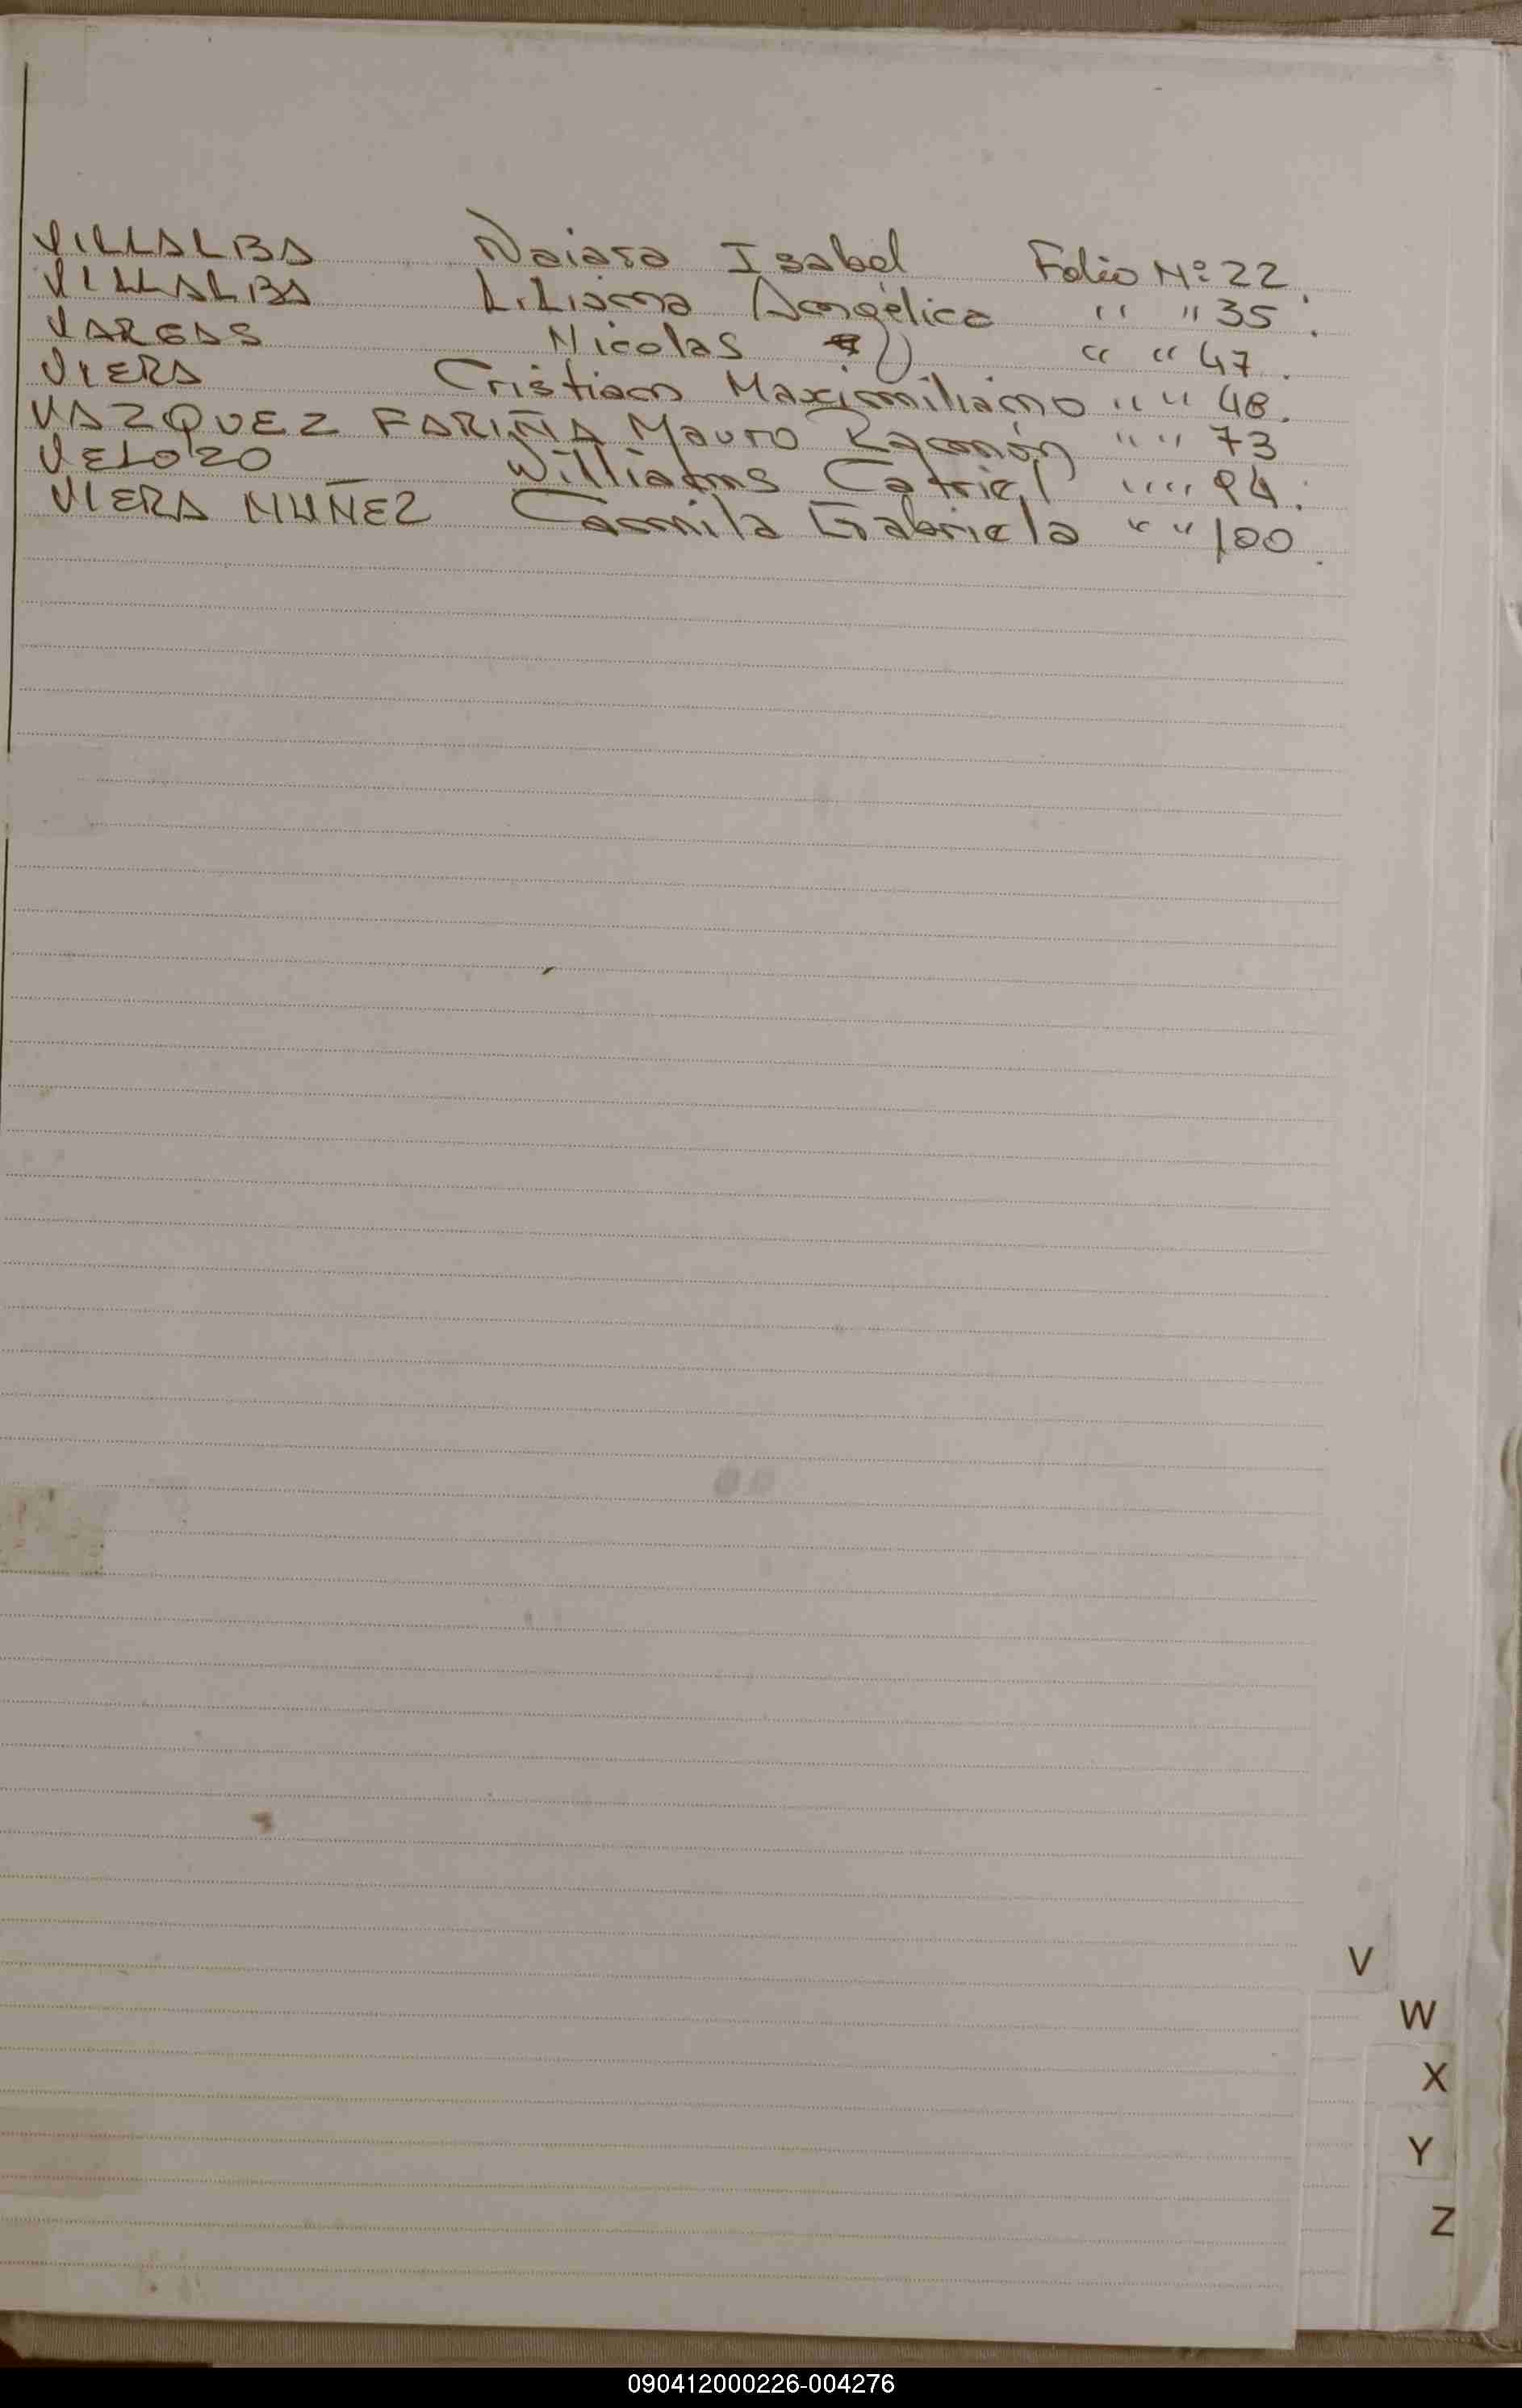 VILLALBA Naiara Isabel Folio Nº 22.
VILLALBA Liliana Angélica " " 35.
VARGAS Nicolas " " 47.
VIERA Cristian Maximiliano " " 48.
VAZQUEZ FARIÑA Mauro Ramón " " 73
VELOZO Williams Catriel " " 94.
VIERA NUÑEZ Camila Gabriela " " 100.
V
W
X
Y
Z
090412000226-004276